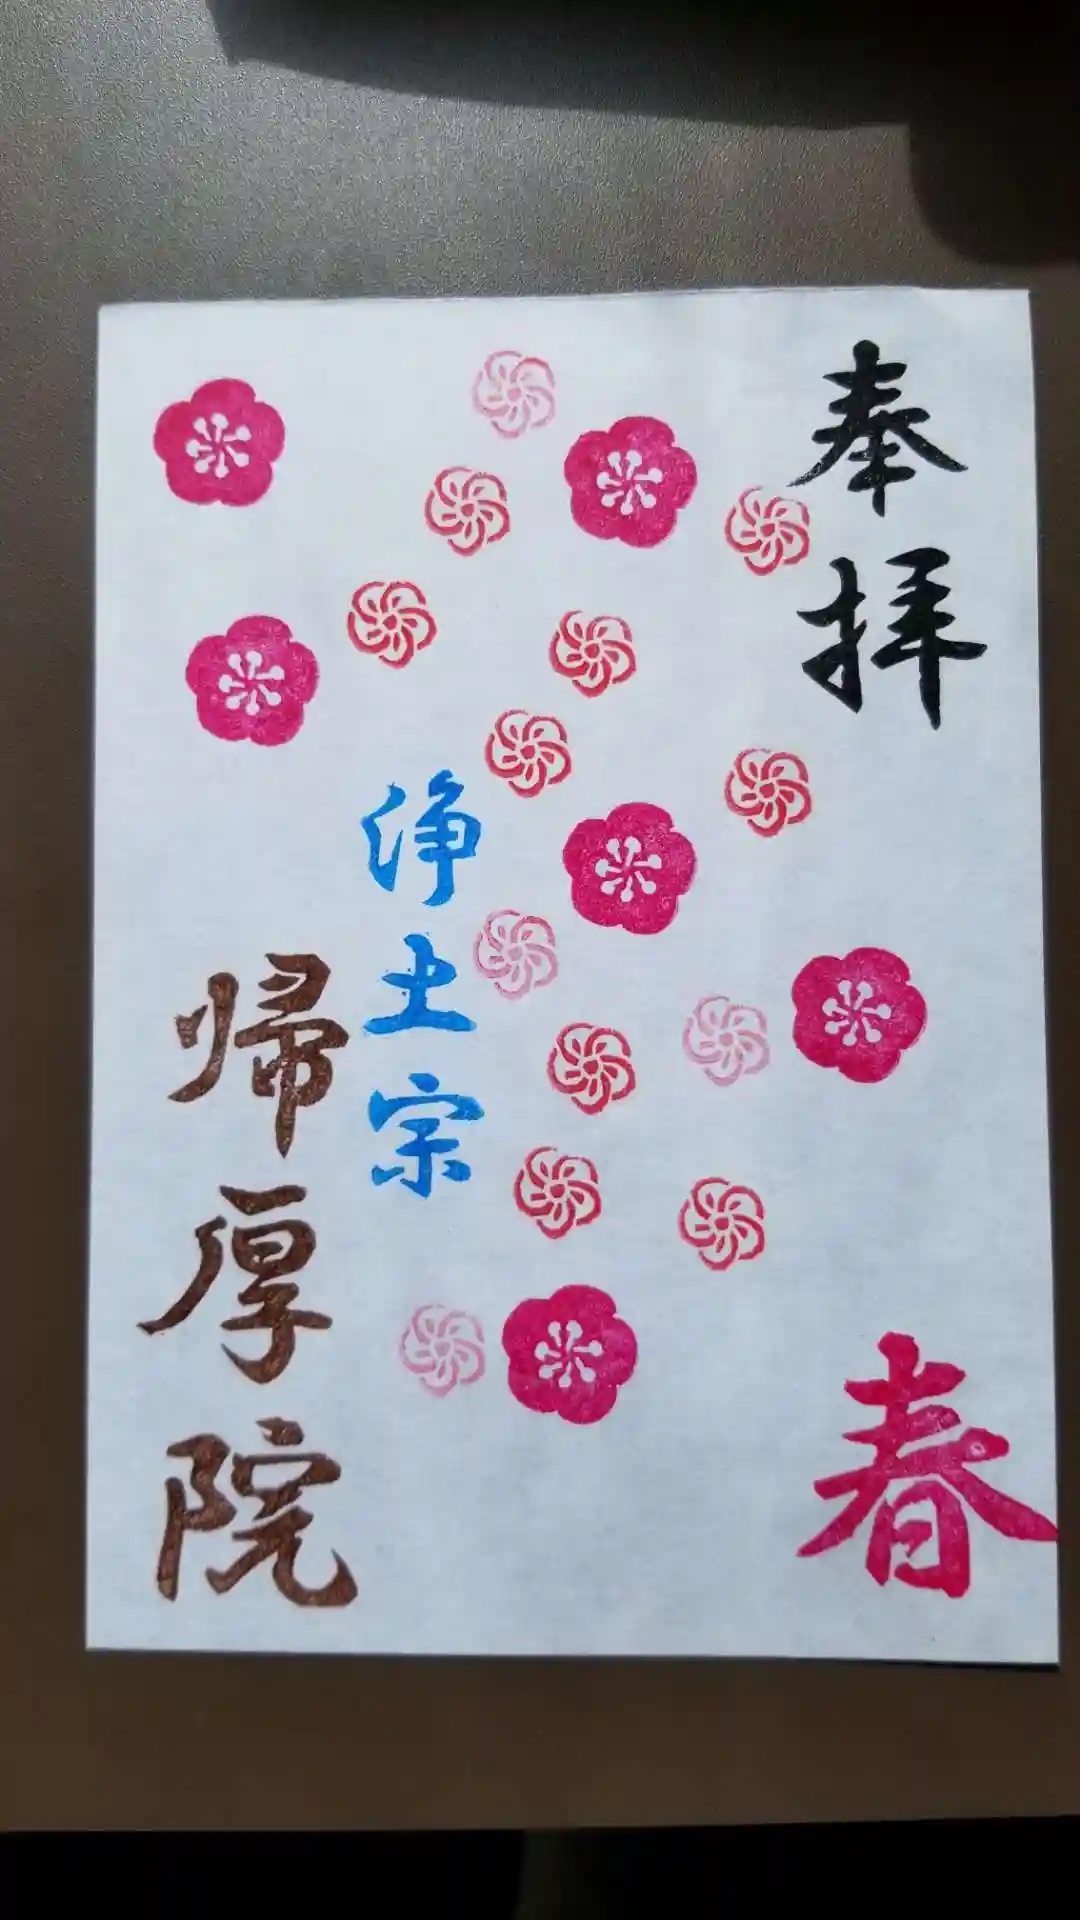 奉拝
春
浄土宗
帰厚院